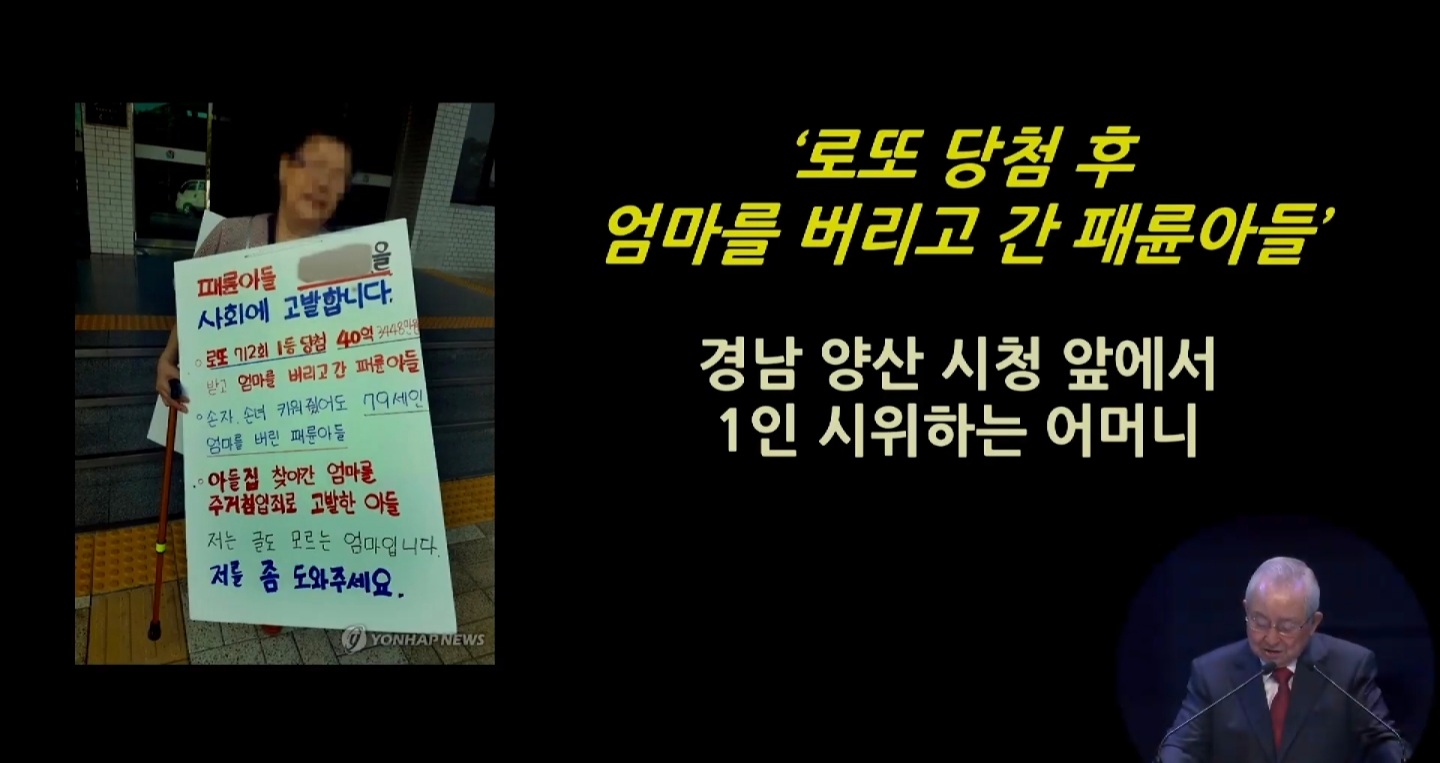 '로또 당첨 후
엄마를 버리고 간 패륜아들'
경남 양산 시청 앞에서
1인 시위하는 어머니
패륜아들 을
사회에 고발합니다.
로또 712회 1등 당첨 40억 3448만원
받고 엄마를 버리고 간 패륜아들
손자. 손녀 키워줬어도 79세인
엄마를 버린 패륜아들
아들집 찾아간 엄마를
주거침입죄로 고발한 아들
저는 글도 모르는 엄마입니다.
저를 좀 도와주세요.
YONHAPNEWS